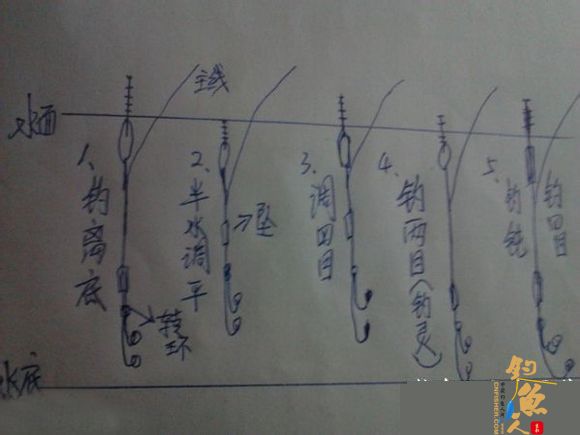 主线
水面
1、钓离底
2、半水调平
坠
3、调四目
4、钓两目(钓灵)
5、钓钝
钓四目
转环
水底
钓鱼人